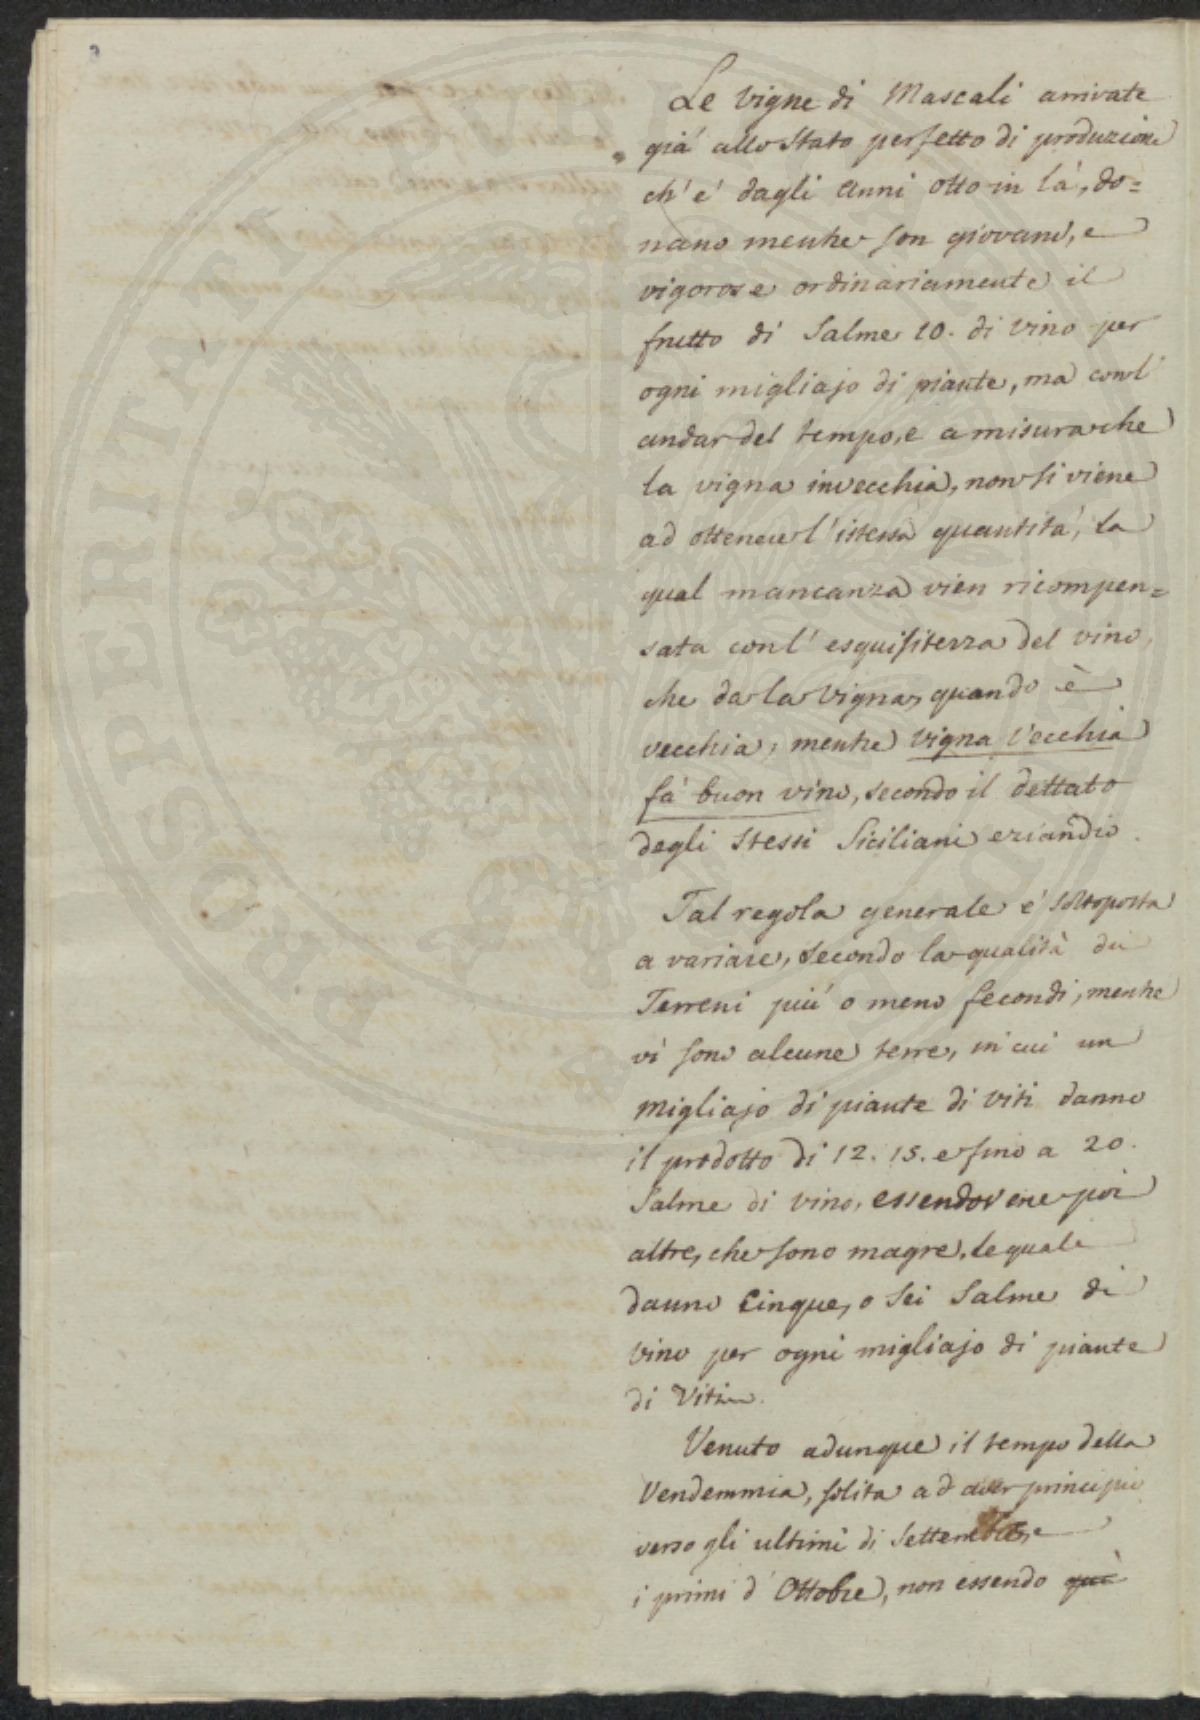 Le Vigne di Mascali arrivate
già allo Stato perfetto di produzione
ch' e' dagli anni otto in là, do=
nano mentre son giovani, e
vigorose ordinariamente il
frutto di Salme 10. di vino per
ogni migliajo di piante, ma con l'
andar del tempo, e a misura che
la vigna invecchia, non si viene
ad ottenere l'istessa quantità, la
qual mancanza vien ricompen=
sata con l' esquisitezza del vino,
che da la Vigna, quando è
vecchia, mentre Vigna Vecchia
fà buon vino, secondo il dettato
degli Stessi Siciliani eziandio.
Tal regola generale e' sottoposta
a variare, secondo la qualità dei
Terreni più o meno fecondi, mentre
vi sono alcune terre, in cui un
Migliajo di piante di viti danno
il prodotto di 12. 15. e fino a 20.
Salme di vino, essendovene poi
altre, che sono magre, le quali
danno Cinque, o Sei Salme di
Vino per ogni migliajo di piante
di Viti.
Venuto adunque il tempo della
Vendemmia, solita ad aver principio
verso gli ultimi di Settembre, e
i primi d' Ottobre, non essendo quì
PROSPERITATI